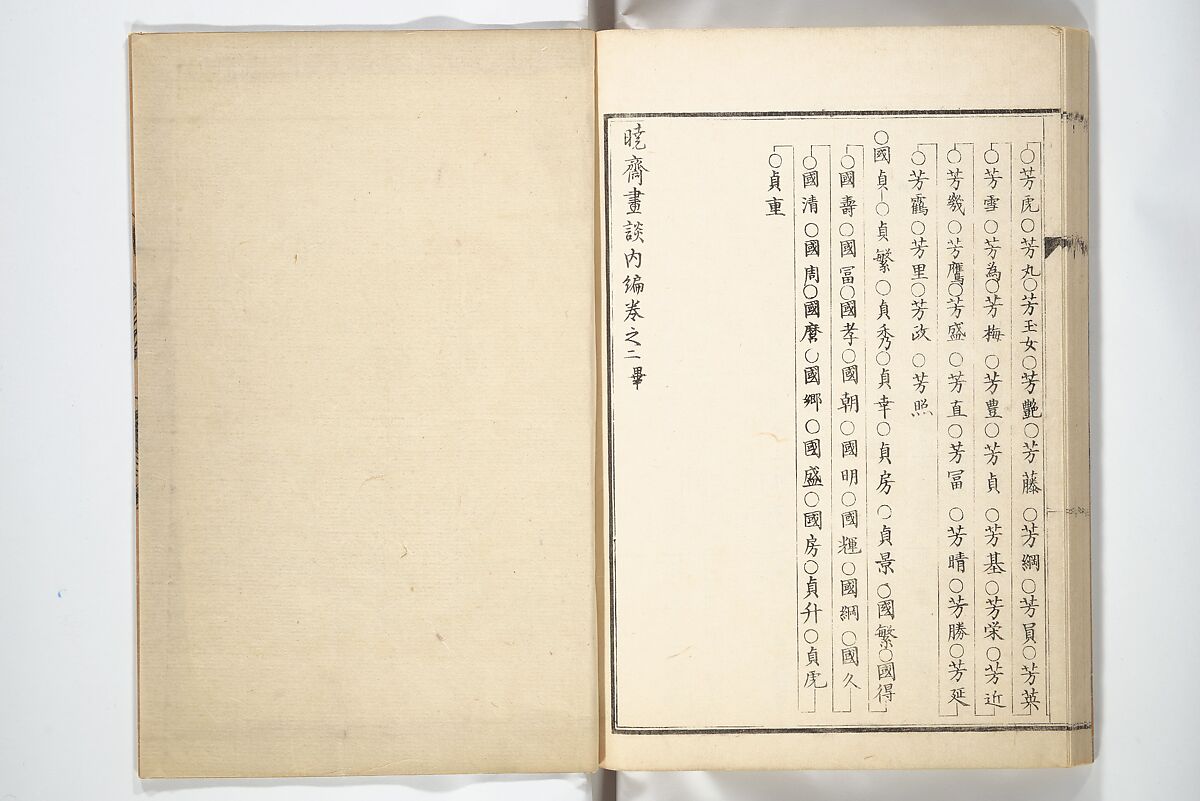 ○芳虎○芳丸○芳玉女○芳艶○芳藤○芳綱○芳員○芳英
○芳雪○芳為○芳梅○芳豊○芳貞○芳基○芳栄○芳近
○芳幾○芳鷹○芳盛○芳直○芳冨○芳晴○芳勝○芳延
○芳靏○芳里○芳政○芳照
○國貞―○貞繁○貞秀○貞幸○貞房○貞景○國繁○國得
○國壽○國冨○國孝○國朝○國明○國輝○國綱○國久
○國清○國周○國麿○國郷○國盛○國房○貞升○貞虎
○貞重
暁齋畫談内編巻之二畢